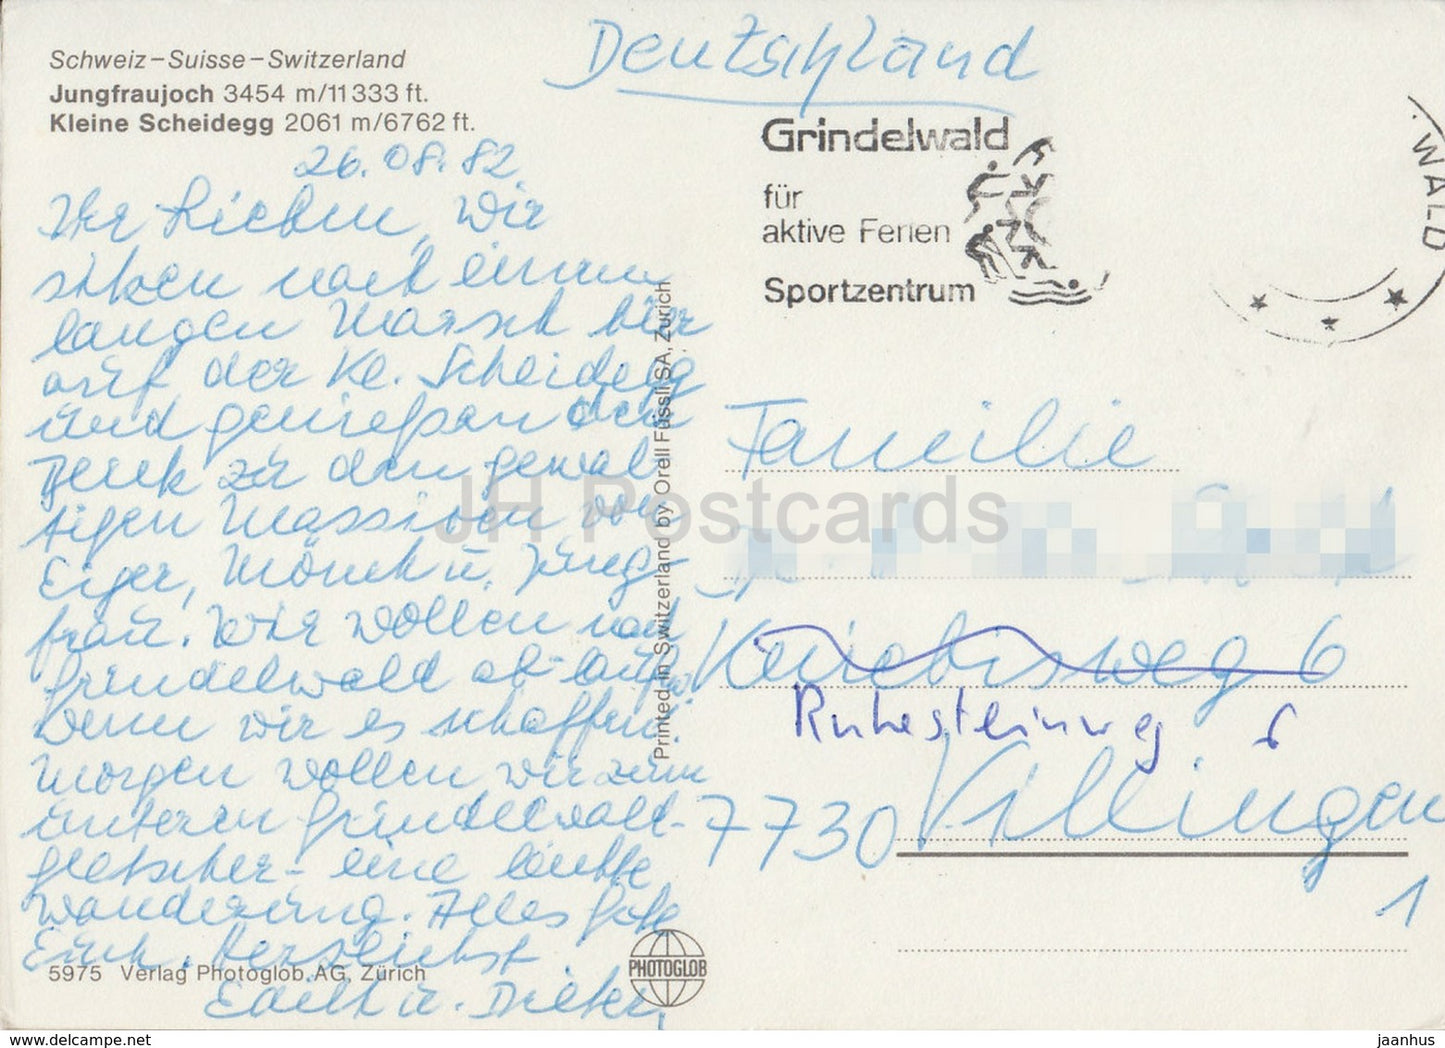 Schweiz–Suisse–Switzerland
Jungfraujoch 3454 m/11 333 ft.
Kleine Scheidegg 2061 m/6762 ft.
26.08.82
Ihr Lieben, wir
sitzen nach einem
langen Marsch hier
auf der Kl. Scheidegg
und genießen den
Blick zu den gewal-
tigen Massiven von
Eiger, Mönch u. Jung-
frau. Wir wollen nach
Grindelwald ab-laufen
wenn wir es schaffen.
Morgen wollen wir zum
unteren Grindelwald-
gletscher - eine leichte
Wanderung. Alles Gute
Euch. Herzlichst
Edith u. Dieter
5975 Verlag Photoglob AG, Zürich
PHOTOGLOB
Printed in Switzerland by Orell Füssli SA, Zürich
Deutschland
Grindelwald
für
aktive Ferien
Sportzentrum
WALD
Familie
Kniebisweg 6
Ruhesteinweg 6
7730 Villingen
1
JH Postcards
www.delcampe.net
jaanhus